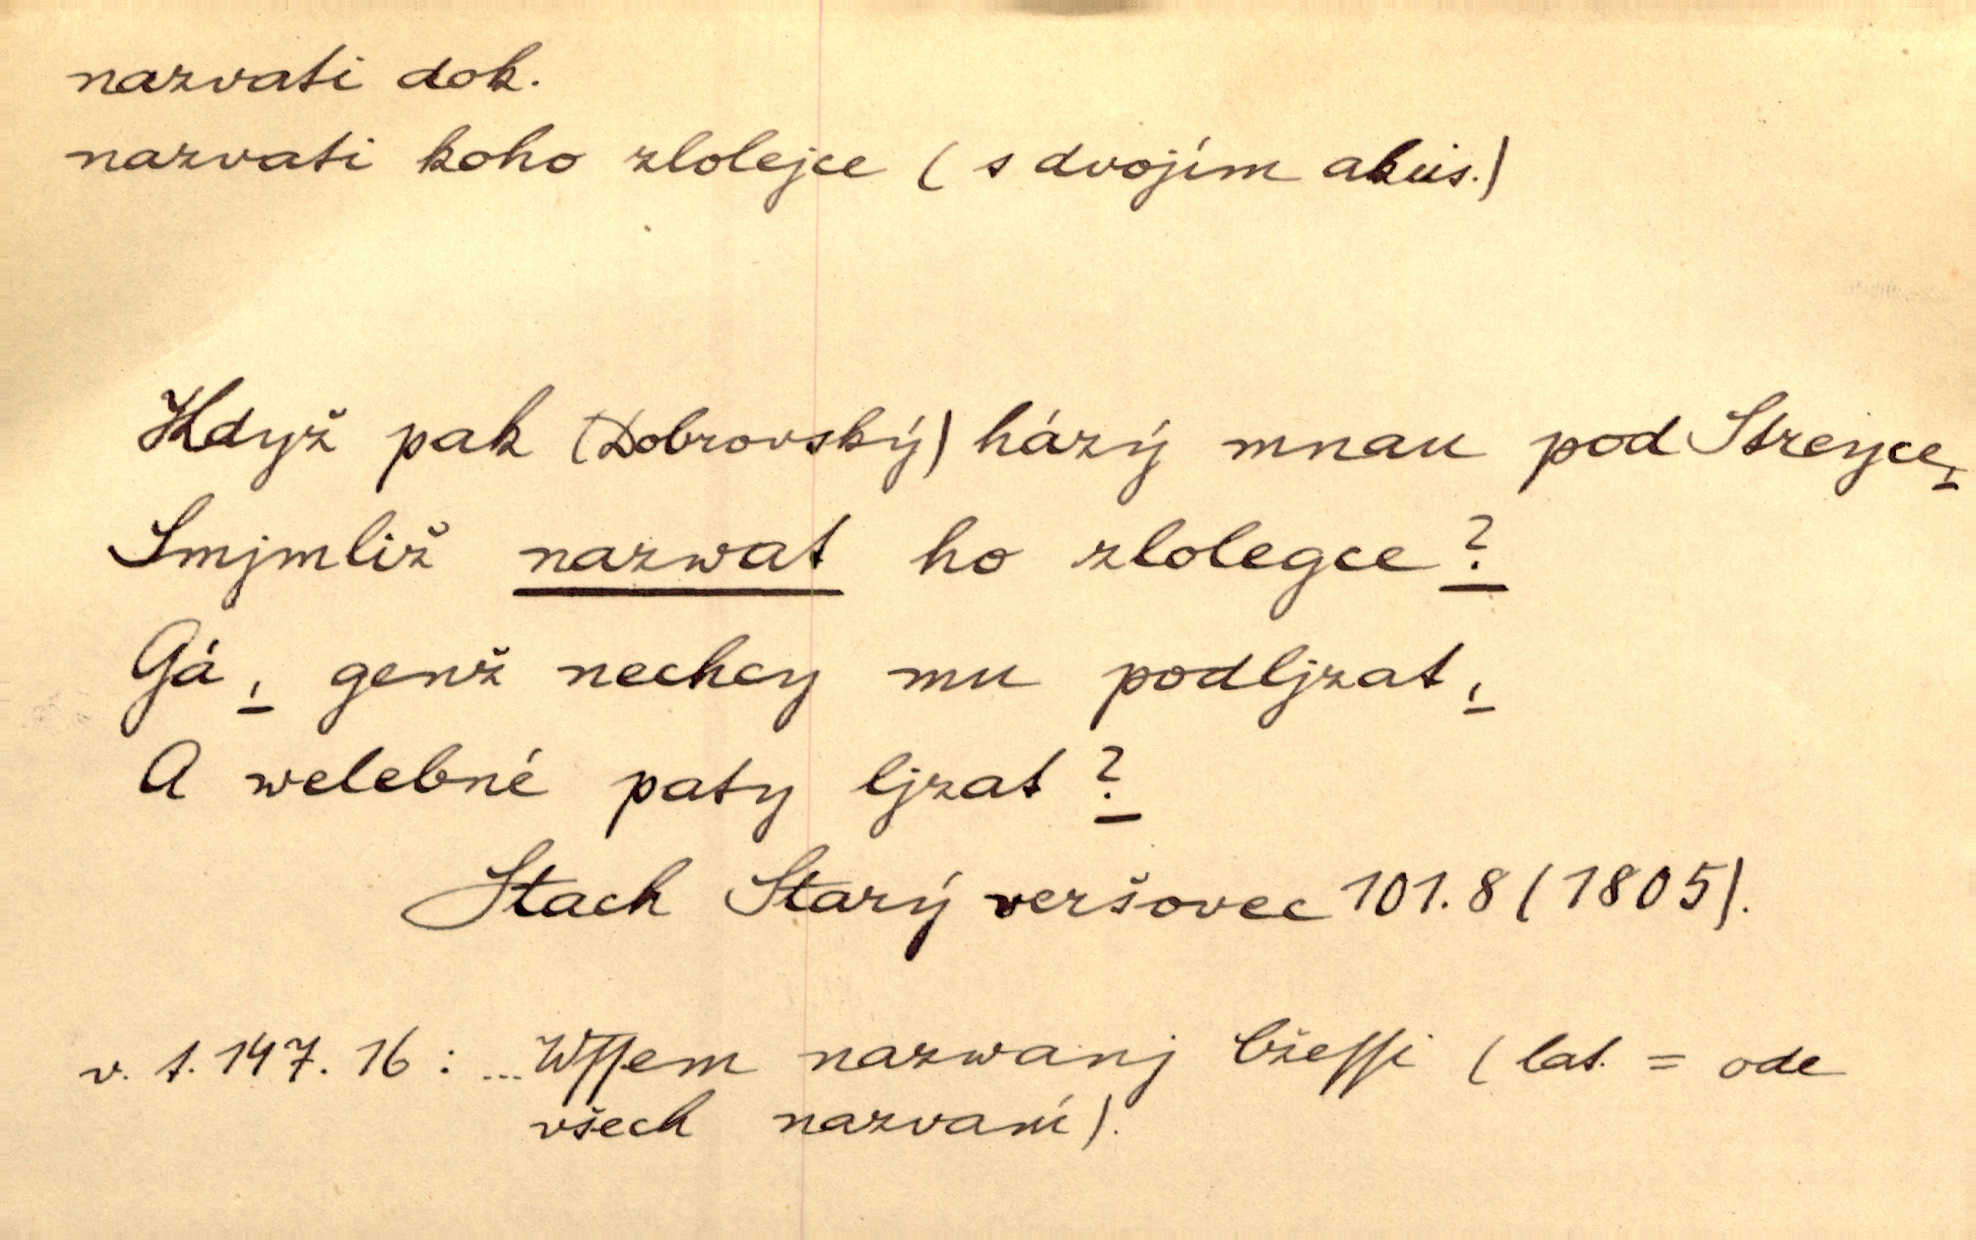 nazvati dok.
nazvati koho zlolejce (s dvojím akus.)
Když pak (Dobrovský) házý mnau pod Streyce,
Smjmliž nazwat ho zlolegce?
Gá, genž nechcy mu podljzat,
A welebné paty ljzat?
Stach Starý veršovec 101.8 (1805).
v. t. 147. 16: ... Wssem nazwanj bžessi (lat. = ode
všech nazvaní).